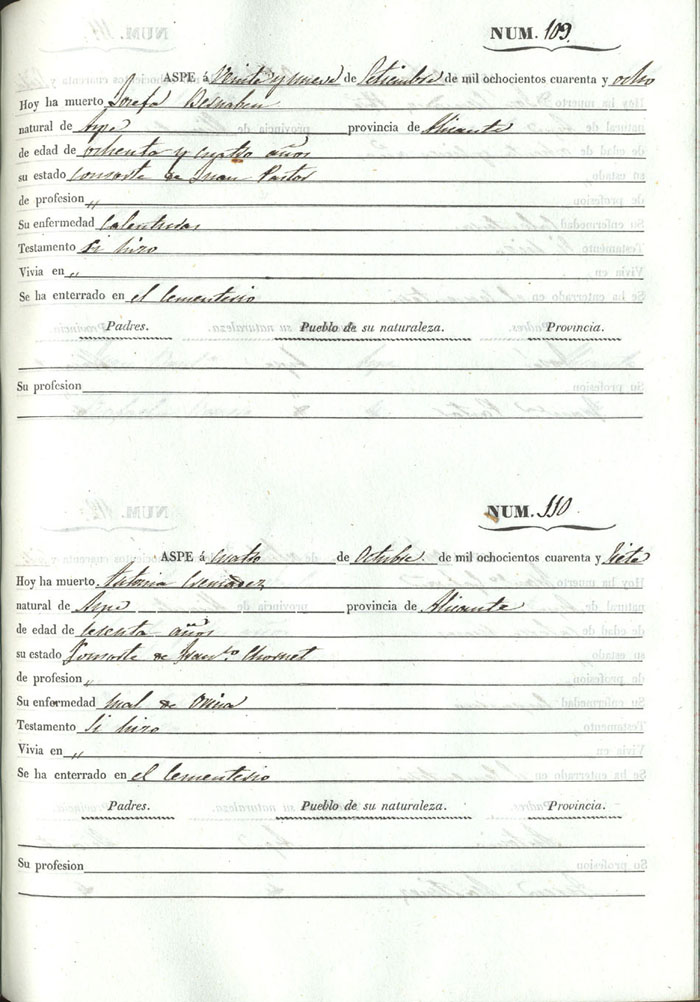 NUM. 109.
ASPE á Veinte y nueve de Setiembre de mil ochocientos cuarenta y ocho
Hoy ha muerto Josefa Besnabeu
natural de Aspe provincia de Alicante
de edad de ochenta y cuatro años
su estado Consorte de Juan Pastor
de profesion „
Su enfermedad Calenturas
Testamento si hizo
Vivia en „
Se ha enterrado en el Cementerio
Padres. Pueblo de su naturaleza. Provincia.
Su profesion
NUM. 110
ASPE á cuatro de Octubre de mil ochocientos cuarenta y siete
Hoy ha muerto Antonia
natural de Aspe provincia de Alicante
de edad de sesenta años
su estado Consorte de Franco. Chornet
de profesion „
Su enfermedad mal de Orina
Testamento Si hizo
Vivia en „
Se ha enterrado en el Cementerio
Padres. Pueblo de su naturaleza. Provincia.
Su profesion